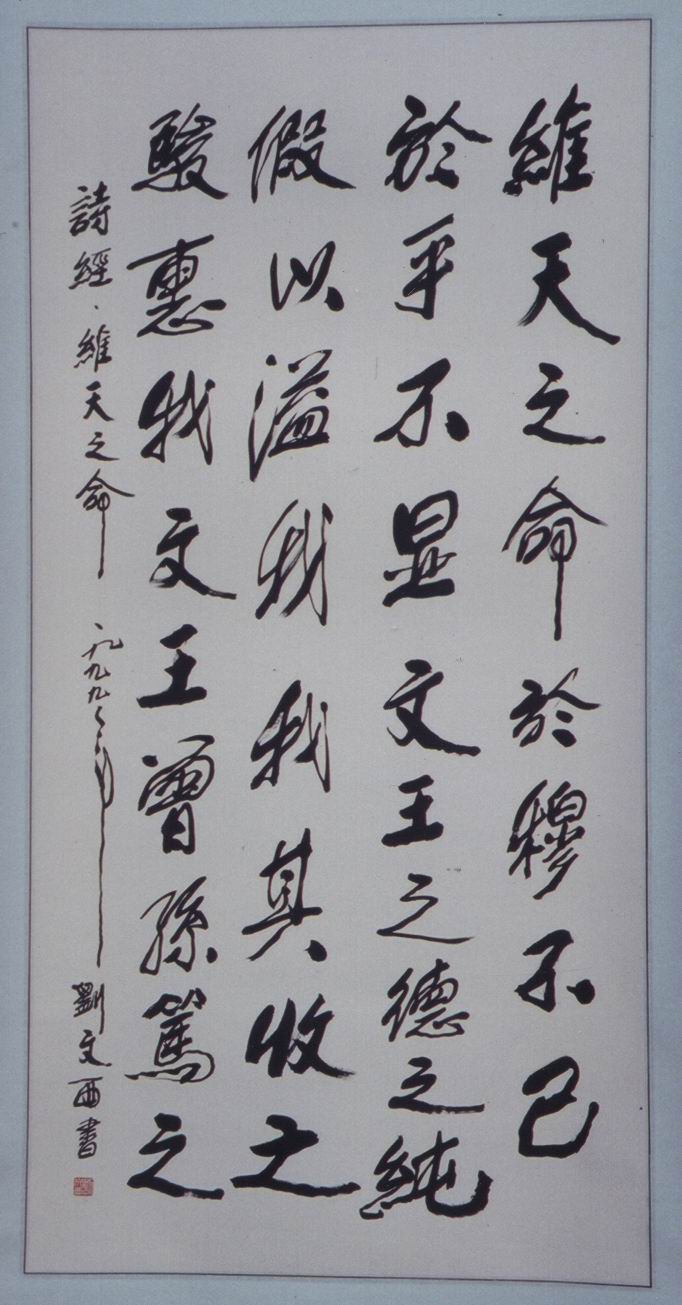 維天之命於穆不已
於乎不显文王之德之純
假以溢我我其收之
駿惠我文王曾孫篤之
詩經、維天之命
一九九九年
劉文西書